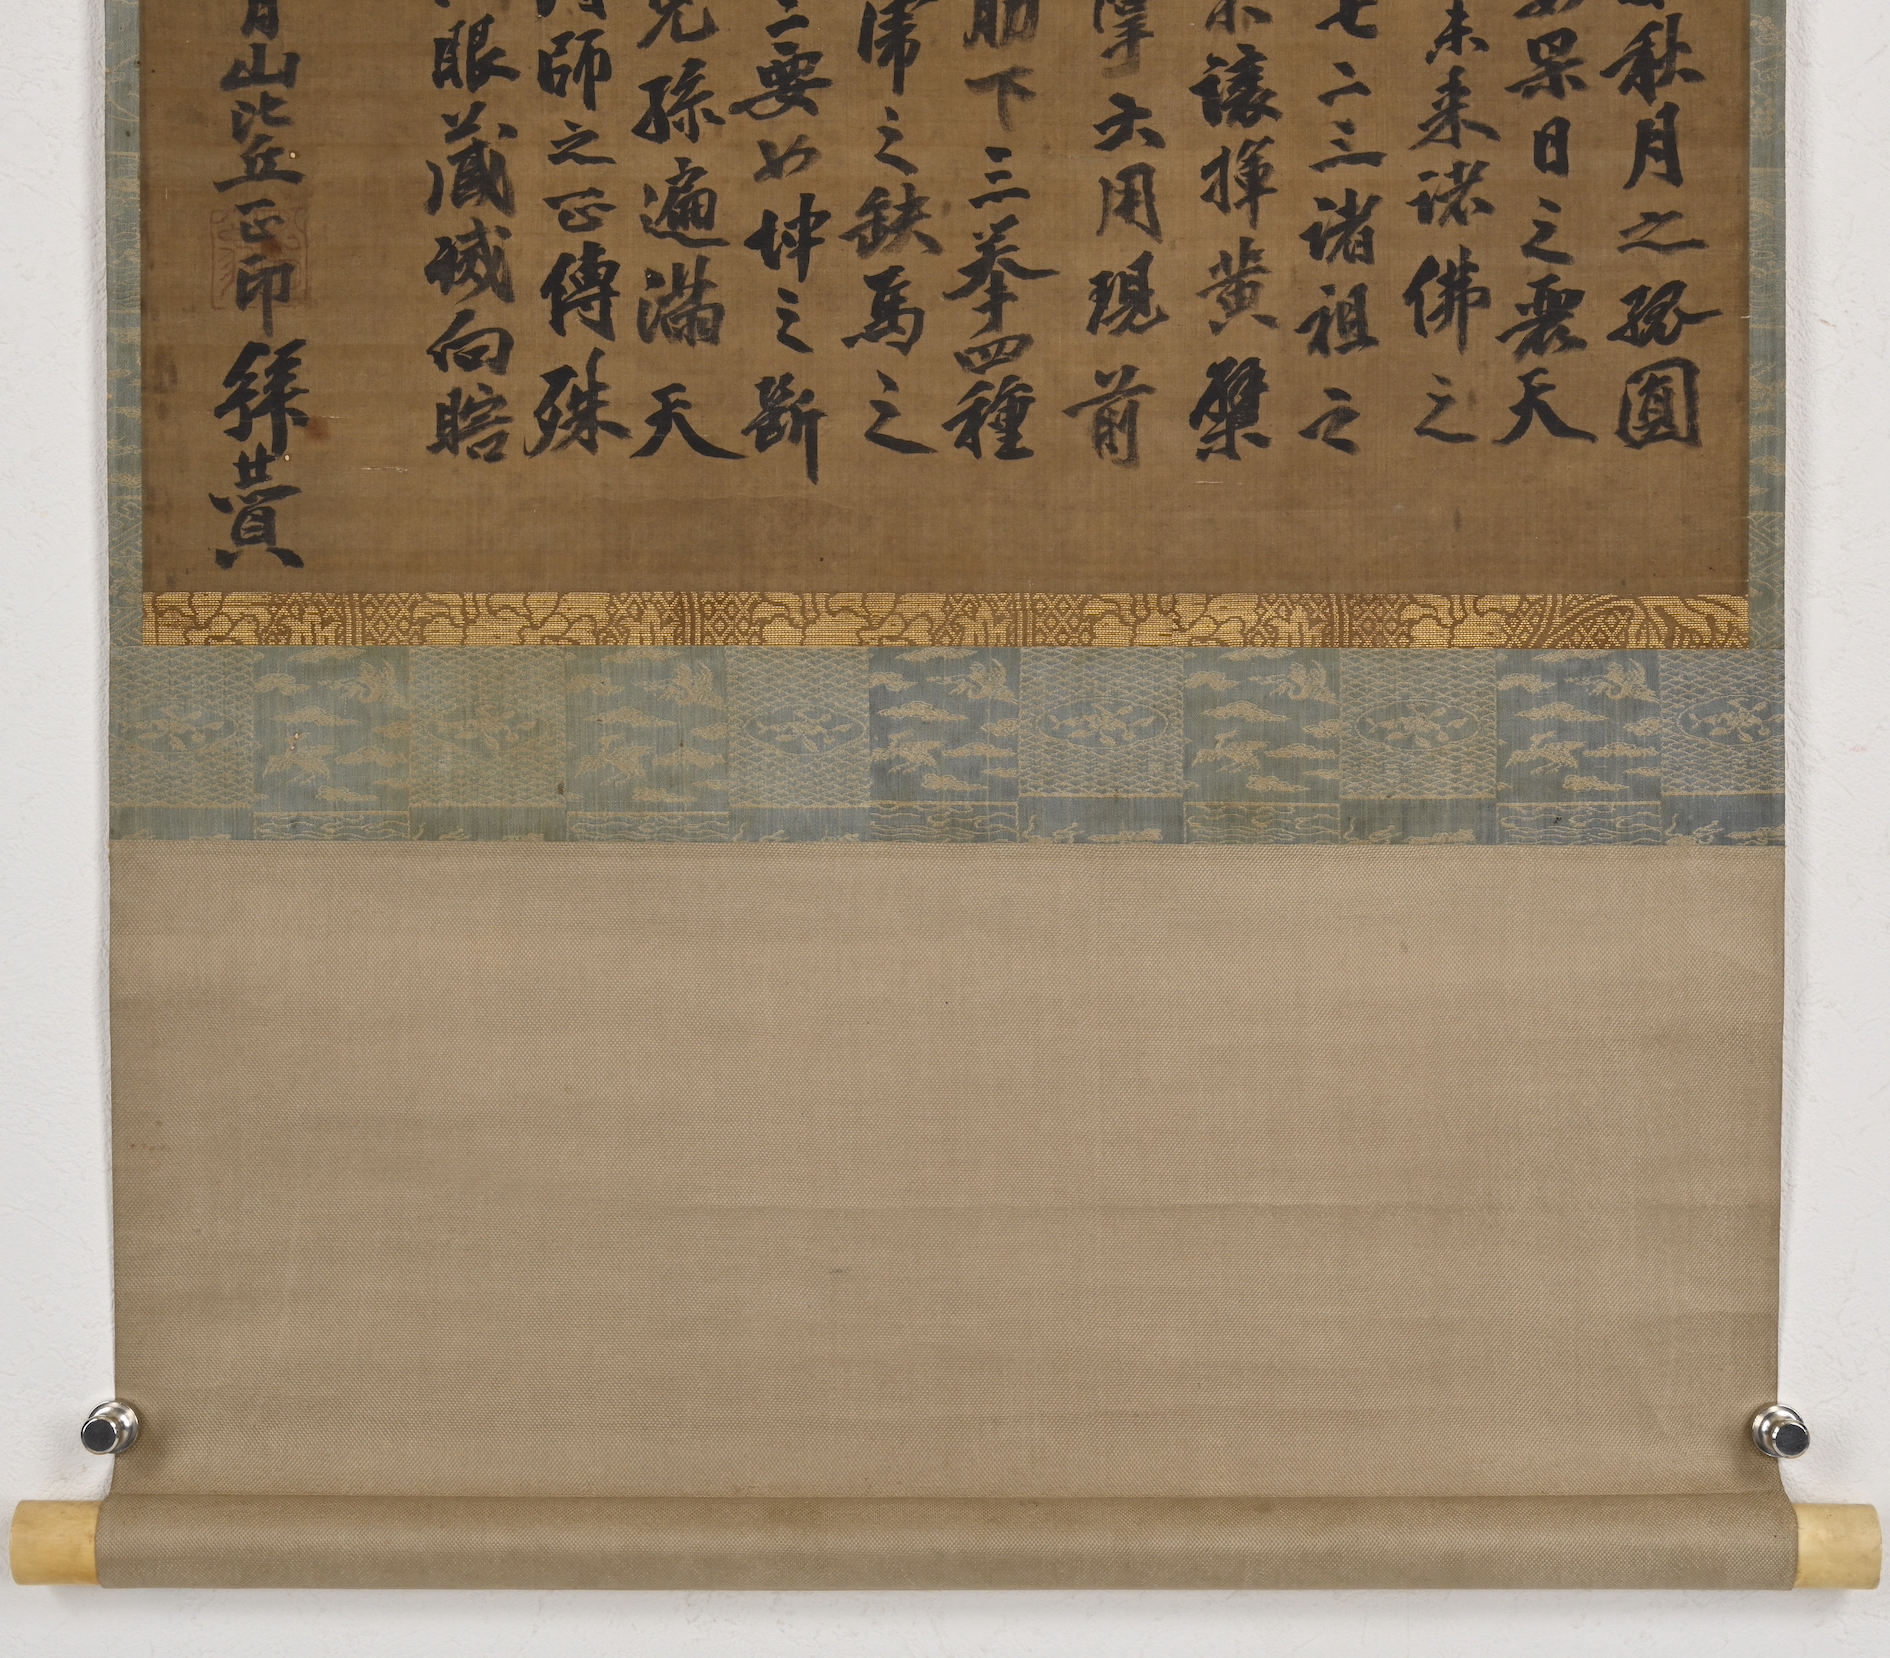 秋月之孤圓
杲日之麗天
未来諸佛之
七二三諸祖之
譲揮黄檗
大用現前
下三拳四種
之缺馬之
三要如坤之斷
兒孫遍満天
師之正傳殊
眼蔵滅向瞎
山比丘正印拜賛